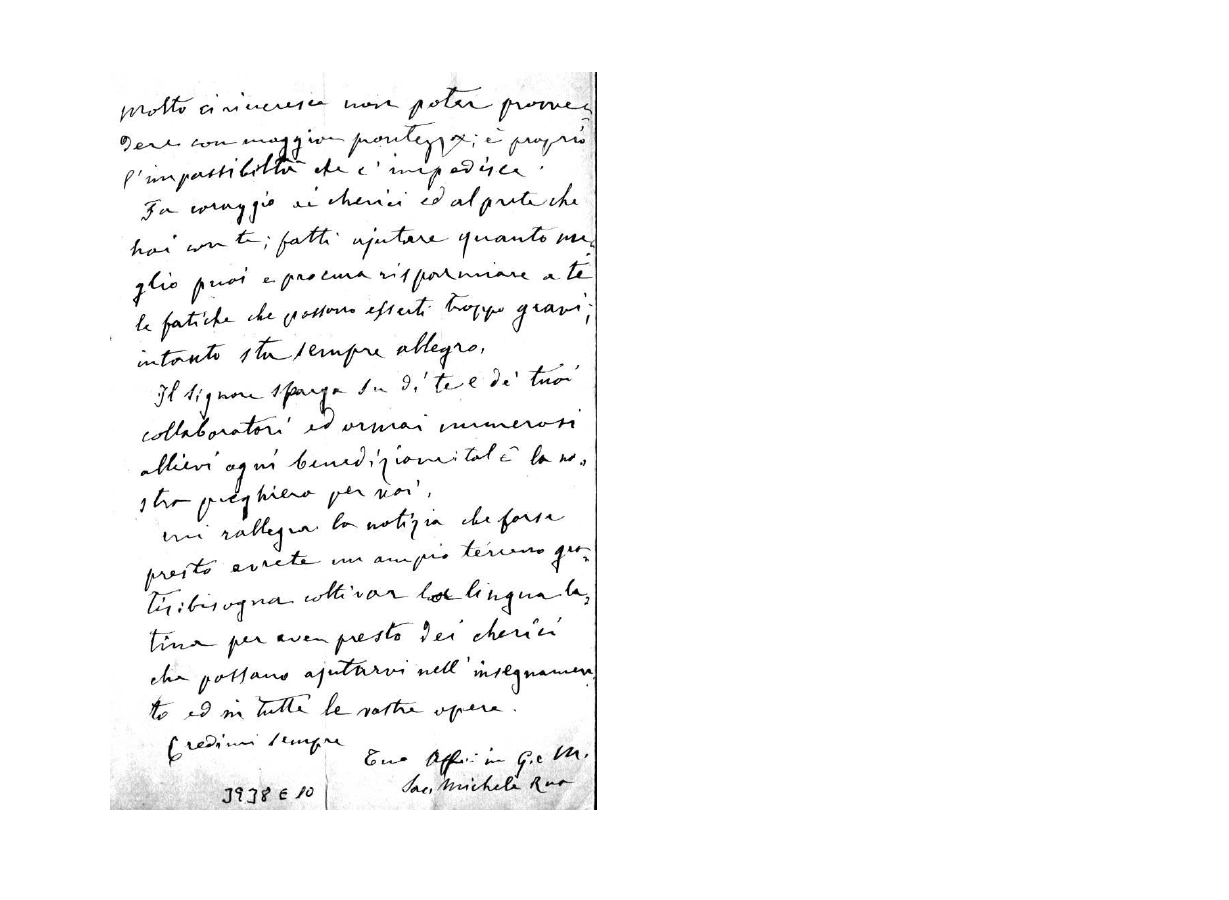 molto ci rincresce non poter provve=
dere con maggior prontezza; è proprio
l'impossibiltà che c'impedisce.
Fa coraggio ai cherici ed al prete che
hai con te; fatti ajutare quanto me=
glio puoi e procura risparmiare a te
le fatiche che possono esserti troppo gravi;
intanto sta sempre allegro.
Il Signore sparga su di te e de' tuoi
collaboratori ed ormai numerosi
allievi ogni benedizione: tal è la no=
stra preghiera per voi.
mi rallegra la notizia che forse
presto avrete un ampio terreno gra=
tis: bisogna coltivar la lingua la=
tina per aver presto dei cherici
che possano ajutarvi nell'insegnamen
to ed in tutte le vostre opere.
Credimi sempre
Tuo Aff.: in G. e M.
Sac. Michele Rua
3938 E 10